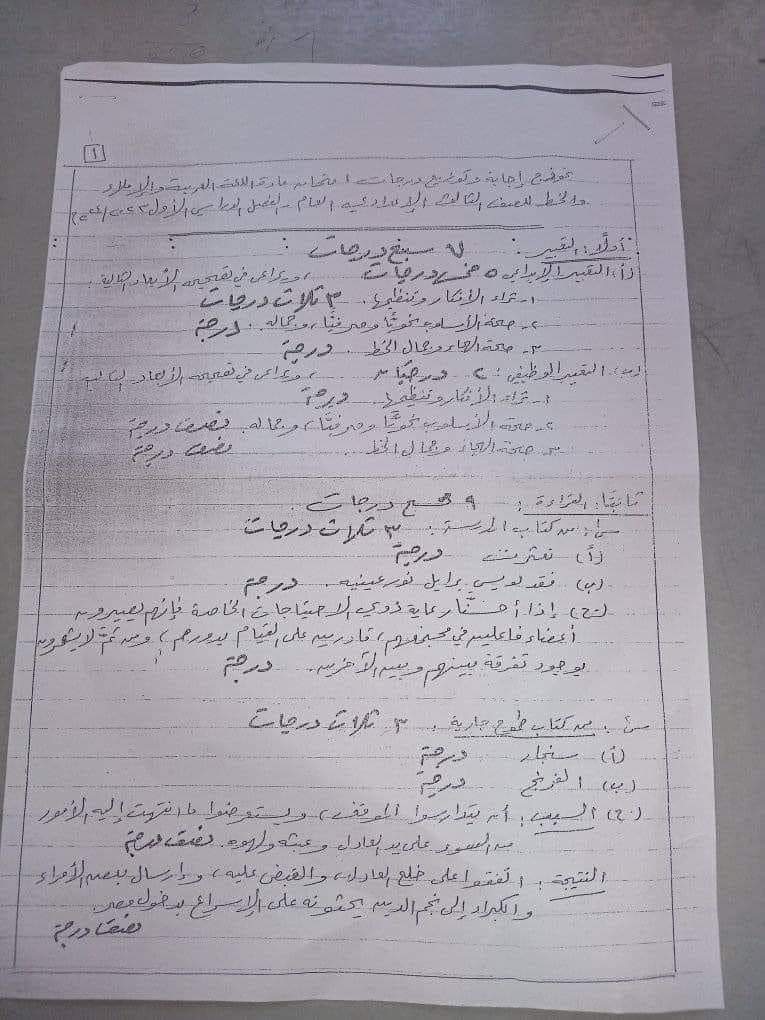 ١
نموذج إجابة وتوزيع درجات امتحان مادة اللغة العربية والإملاء
والخط للصف الثالث الإعدادى العام - الفصل الدراسى الأول
أولًا: التعبير : ٧ سبع درجات
(أ) التعبير الإبداعى ٥ خمس درجات ، ويراعى فى تصحيحه الأبعاد التالية:
١- ثراء الأفكار وتنظيمها. ٣ ثلاث درجات
٢- صحة الأسلوب نحويًّا وصرفيًّا، وجماله. درجة
٣- صحة الهجاء وجمال الخط. درجة
(ب) التعبير الوظيفى: ٢ درجتان ، ويراعى فى تصحيحه الأبعاد التالية
١- ثراء الأفكار وتنظيمها. درجة
٢- صحة الأسلوب نحويًّا وصرفيًّا، وجماله. نصف درجة
٣- صحة الهجاء وجمال الخط. نصف درجة
ثانيًا: القراءة : ٩ تسع درجات
س١: من كتاب المدرسة: ٣ ثلاث درجات
(أ) درجة
(ب) فقد لويس برايل نور عينيه. درجة
(ج) إذا أحسنَّا رعاية ذوي الاحتياجات الخاصة فإنهم يصيرون
أعضاء فاعلين في مجتمعهم، قادرين على القيام بدورهم، ومن ثمَّ لا يشعرون
بوجود تفرقة بينهم وبين الآخرين. درجة
س٢: من كتاب طموح جارية: ٣ ثلاث درجات
(أ) سنجار درجة
(ب) الفرنج درجة
(ج) السبب: أن يتدارسوا الموقف، ويستعرضوا ما انتهت إليه الأمور
من السوء على يد العادل وعبثه ولهوه. نصف درجة
النتيجة: اتفقوا على خلع العادل، والقبض عليه، وإرسال بعض الأمراء
والكبراء إلى نجم الدين يحثونه على الإسراع بدخول مصر.
نصف درجة